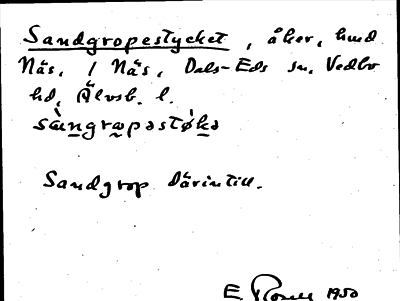 Sandgropestycket, åker, hmd
Näs, 1 Näs, Dals-Eds sn, Vedbo
hd, Älvsb. l.
sàŋgrɷpəstø̀kə
Sandgrop därintill.
E. 1950